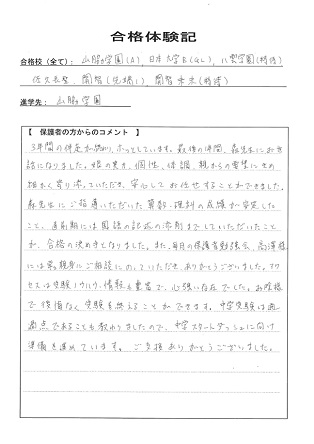 合格体験記
合格校（全て）： 山脇学園(A)、日本大学B(GL)、八雲学園(特待)
佐久長聖、開智(先端1)、開智未来(特待)
進学先： 山脇学園
【 保護者の方からのコメント 】
3年間の伴走が終わり、ホッとしています。最後の1年間、森先生にお世
話になりました。娘の実力、個性、体調、親からの要望にきめ
細かく寄り添っていただき、安心してお任せすることができました。
森先生にご指導いただいた算数・理科の成績が安定した
こと、直前期には国語の記述の添削までしていただいたこと
が、合格の決め手となりました。また、毎月の保護者勉強会、高澤様
には常に親身にご相談にのっていただき、ありがとうございました。アク
セスは受験ノウハウ、情報も豊富で、心強い存在でした。お陰様
で後悔なく受験を終えることができます。中学受験は通
過点であることも教わりましたので、中学スタートダッシュに向け
準備を進めています。ご支援ありがとうございました。